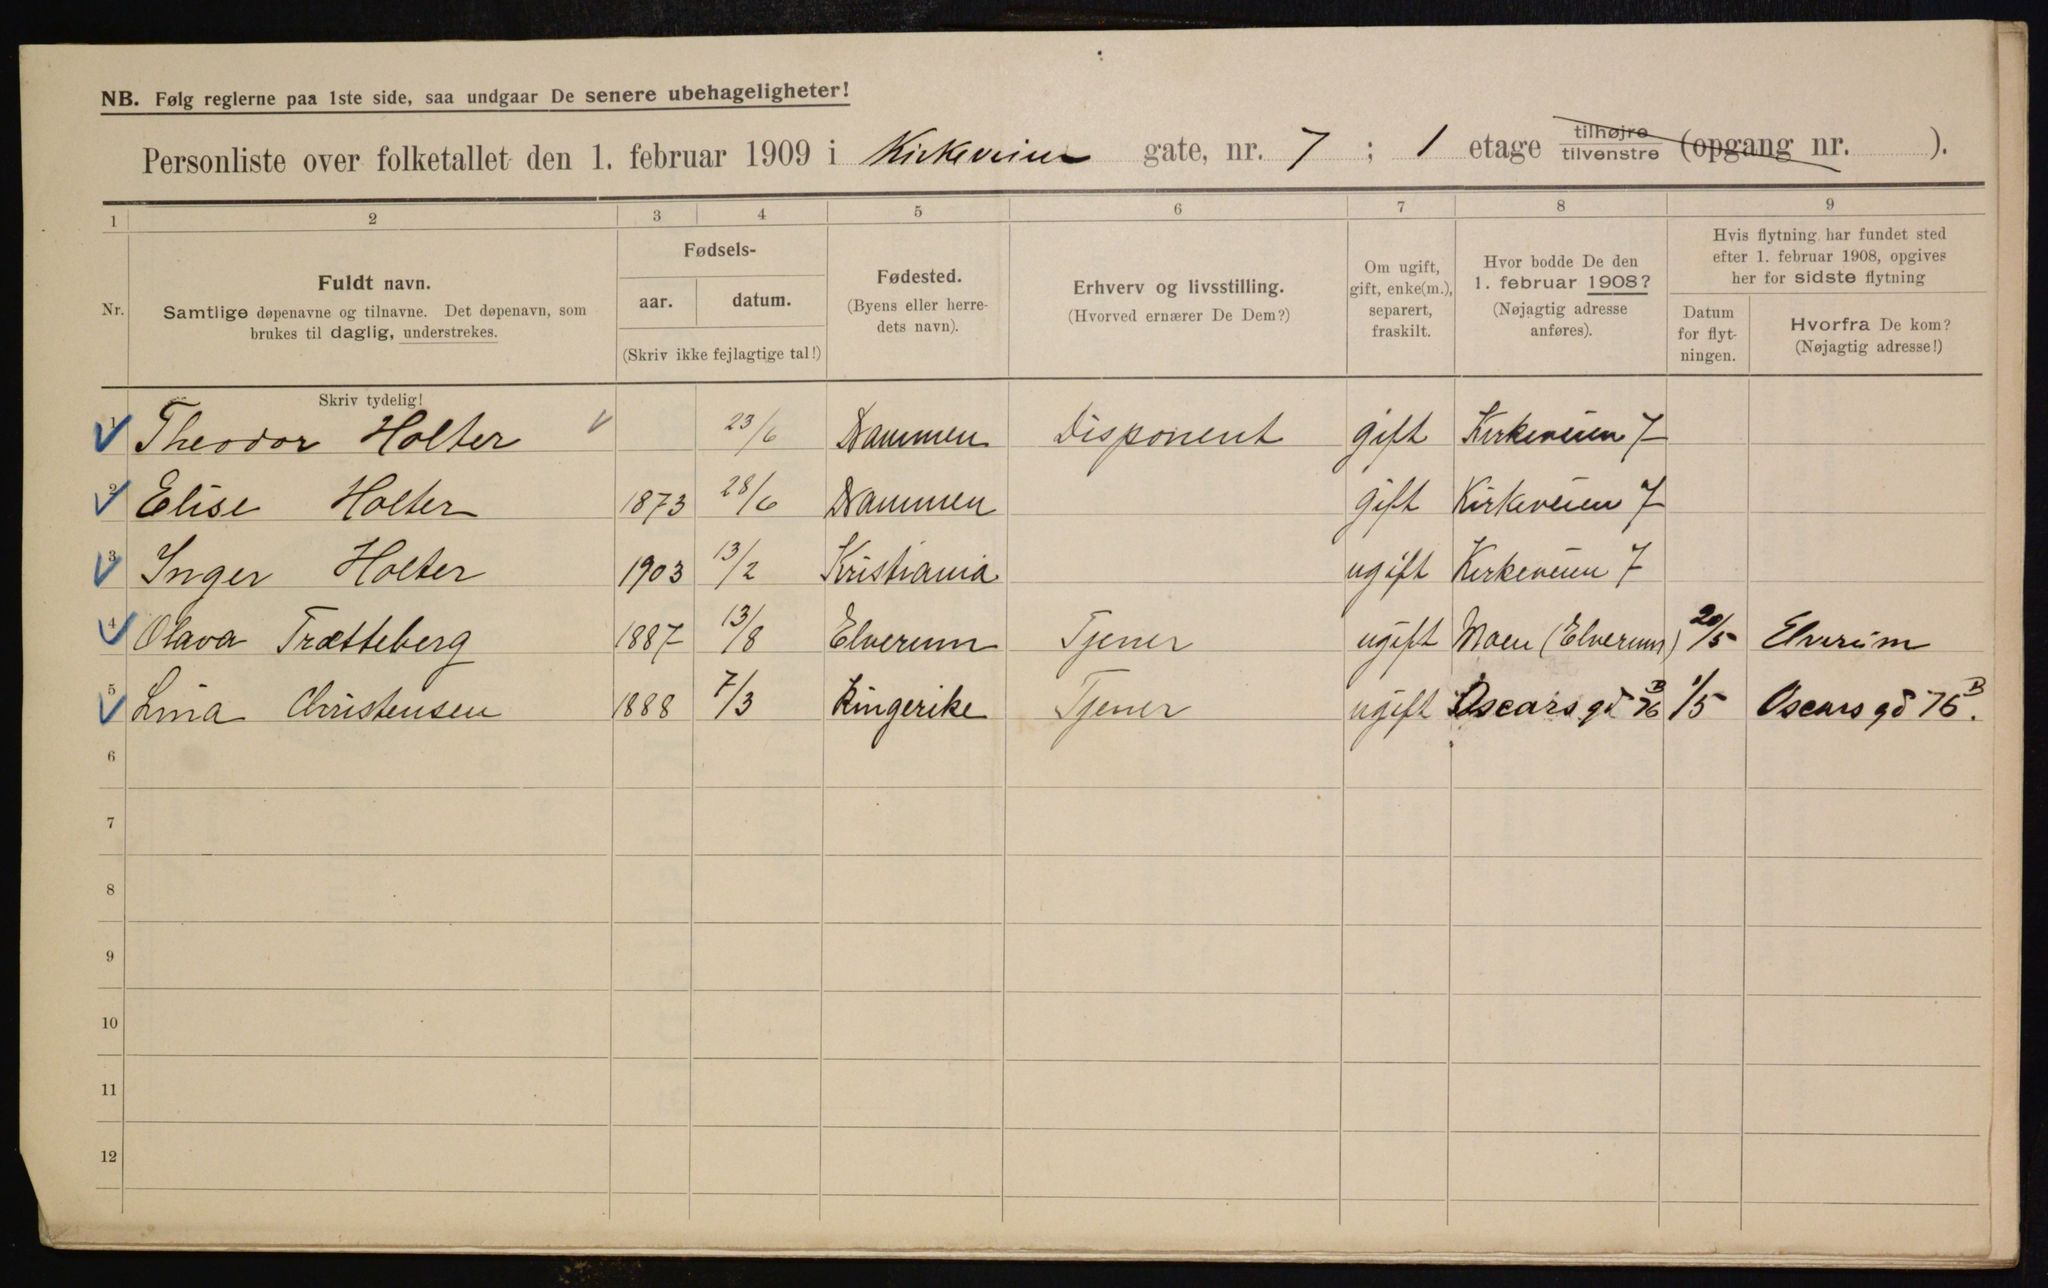 NB. Følg reglerne paa 1ste side, saa undgaar De senere ubehageligheter!
Personliste over folketallet den 1. februar 1909 i Kirkeveien gate, nr. 7 ; 1 etage tilhøjre tilvenstre (opgang nr. ).
1 2 3 4 5 6 7 8 9
Nr.
Fuldt navn.
Samtlige døpenavne og tilnavne. Det døpenavn, som
brukes til daglig, understrekes.
Skriv tydelig!
Fødsels-
aar. datum.
(Skriv ikke fejlagtige tal!)
Fødested.
(Byens eller herre-
dets navn).
Erhverv og livsstilling.
(Hvorved ernærer De Dem?)
Om ugift,
gift, enke(m.),
separert,
fraskilt.
Hvor bodde De den
1. februar 1908?
(Nøjagtig adresse
anføres).
Hvis flytning har fundet sted
efter 1. februar 1908, opgives
her for sidste flytning
Datum
for flyt-
ningen.
Hvorfra De kom?
(Nøjagtig adresse!)
1 Theodor Holter 23/6 Drammen Disponent gift Kirkeveien 7
2 Elise Holter 1873 28/6 Drammen gift Kirkeveien 7
3 Inger Holter 1903 13/2 Kristiania ugift Kirkeveien 7
4 Olava Trætteberg 1887 13/8 Elverum Tjener ugift Moen (Elverum) 20/5 Elverum
5 Lina Christensen 1888 7/3 Ringerike Tjener ugift Oscars gd 76 B 1/5 Oscars gd 76 B.
6
7
8
9
10
11
12